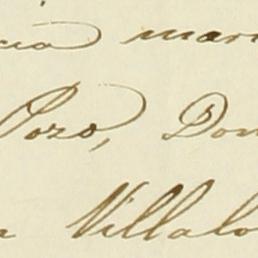 cia mar
Pozo, Don
a Villalo